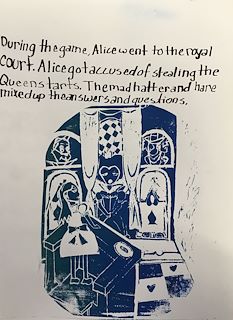 During the game, Alice went to the royal
court. Alice got accused of stealing the
Queens tarts. The mad hatter and hare
mixed up the answers and questions.